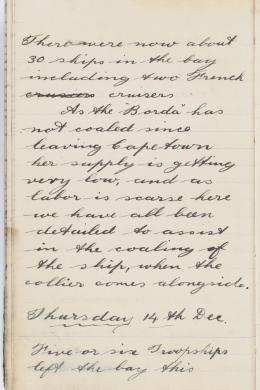 There were now about
30 ships in the bay
including two French
cruisers cruisers
As the "Borda" has
not coaled since
leaving Capetown
her supply is getting
very low, and as
labor is scarse here
we have all been
detailed to assist
in the coaling of
the ship, when the
collier comes alongside.
Thursday 14th Dec.
Five or six Troopships
left the bay this